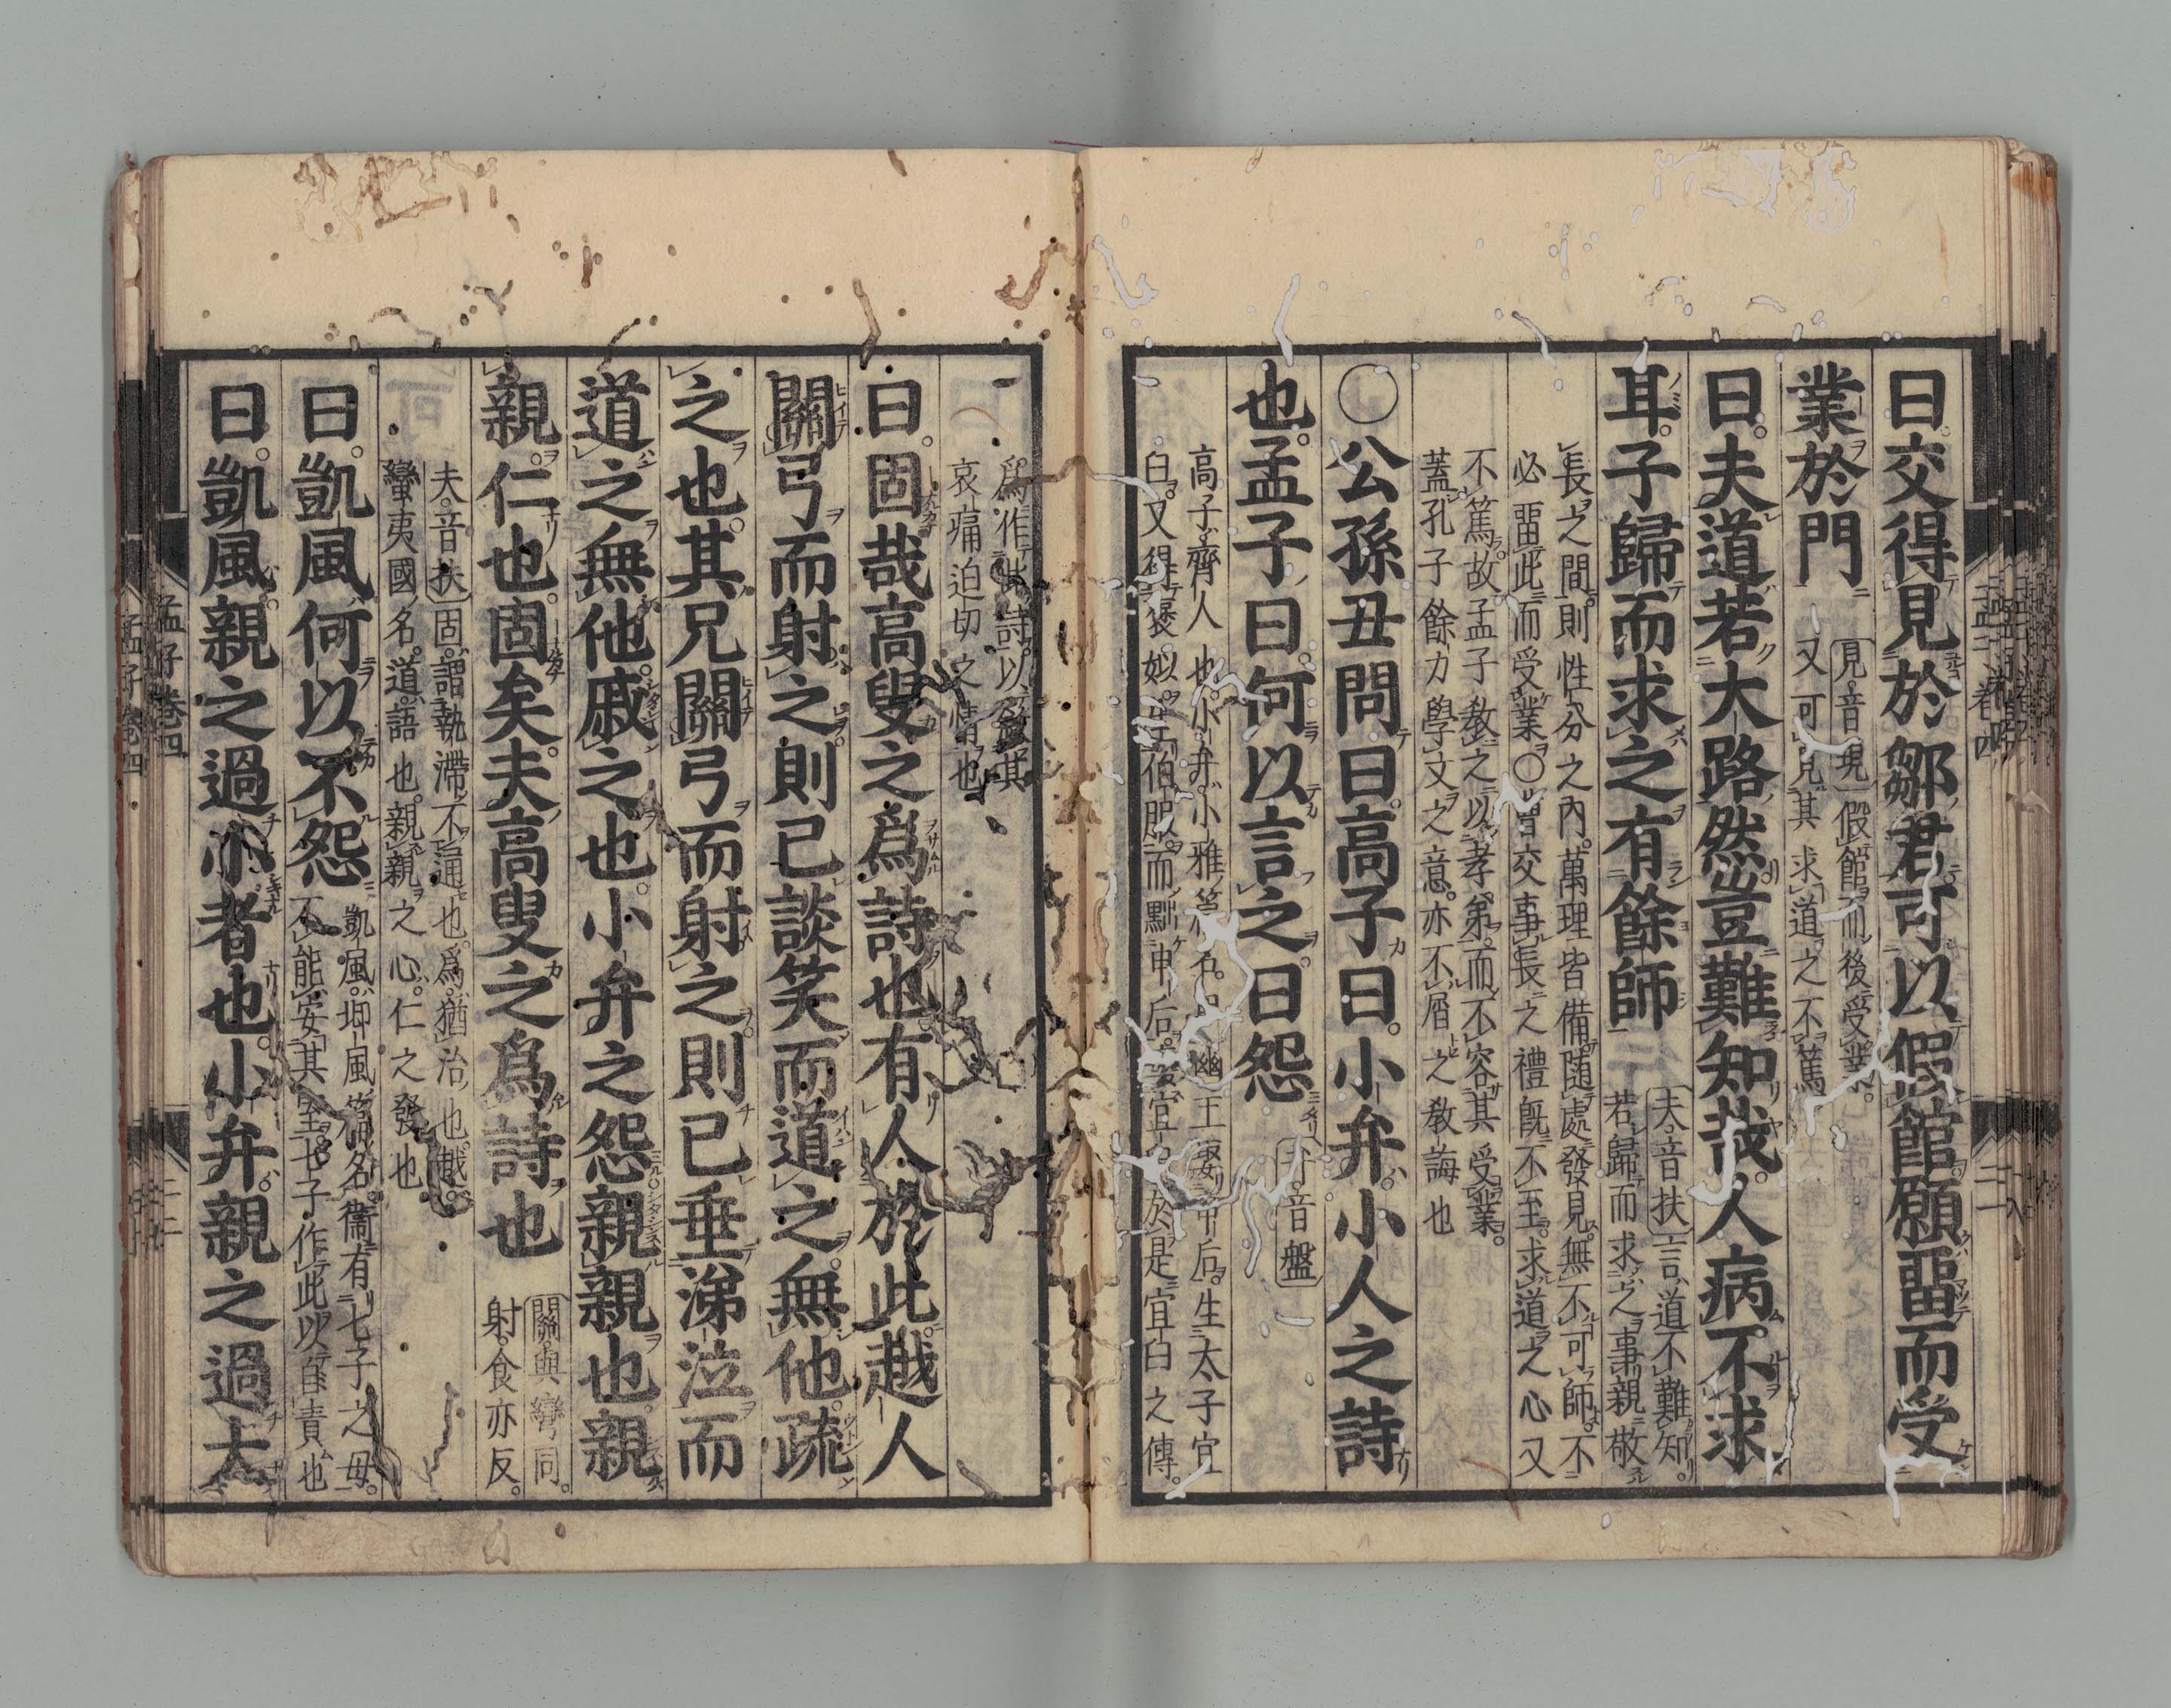 曰交得見於鄒君可以假館願畱而受
業於門
見音現假館而後受業
又可見其求道之不篤
曰夫道若大路然豈難知哉人病不求
耳子歸而求之有餘師
夫音扶言道不難知
若歸而求之事親敬
長之間則性分之內萬理皆備隨處發見無不可師不
必畱此而受業○曹交事長之禮既不至求道之心又
不篤故孟子教之以孝弟而不容其受業
蓋孔子餘力學文之意亦不屑之教誨也
○公孫丑問曰高子曰小弁小人之詩
也孟子曰何以言之曰怨
弁音盤
高子齊人也小弁小雅篇名 幽王娶申后生太子宜
臼又得褒姒生伯服而黜申后 宜 於是宜臼之傳
爲作此詩以 其
哀痛迫切之情也
曰固哉高叟之爲詩也有人於此越人
關弓而射之則已談笑而道之無他疏
之也其兄關弓而射之則已垂涕泣而
道之無他戚之也小弁之怨親親也親
親仁也固矣夫高叟之爲詩也
關與彎同
射食亦反
夫音扶固謂執滯不通也爲猶治也越
蠻夷國名道語也親親之心仁之發也
曰凱風何以不怨
凱風邶風篇名衞有七子之母
不能安其室七子作此以自責也
曰凱風親之過小者也小弁親之過大
孟子卷四
二二